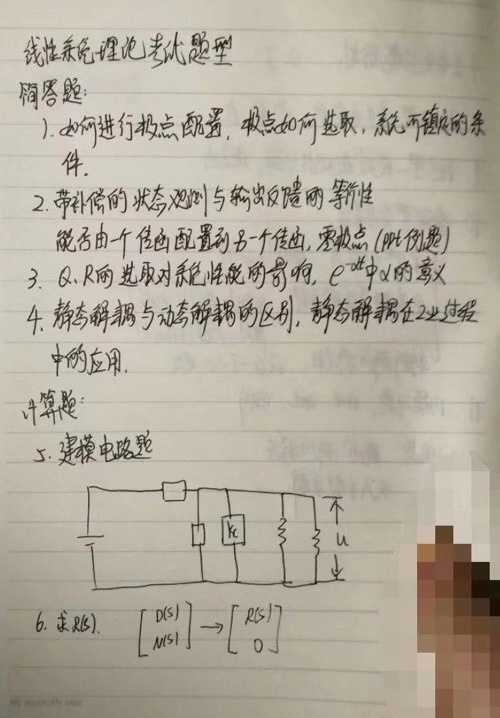 线性系统理论考试题型
简答题:
1. 如何进行极点配置, 极点如何选取, 系统可镇定的条
件.
2. 带补偿的状态观测与输出反馈的等价性
能否由一个传函配置到另一个传函, 零极点(PPT例题)
3. Q、R的选取对系统性能的影响, e^-αt中α的意义
4. 静态解耦与动态解耦的区别, 静态解耦在工业过程
中的应用.
计算题:
5. 建模电路题
u
6. 求R(s). [D(s) N(s)] → [R(s) 0]